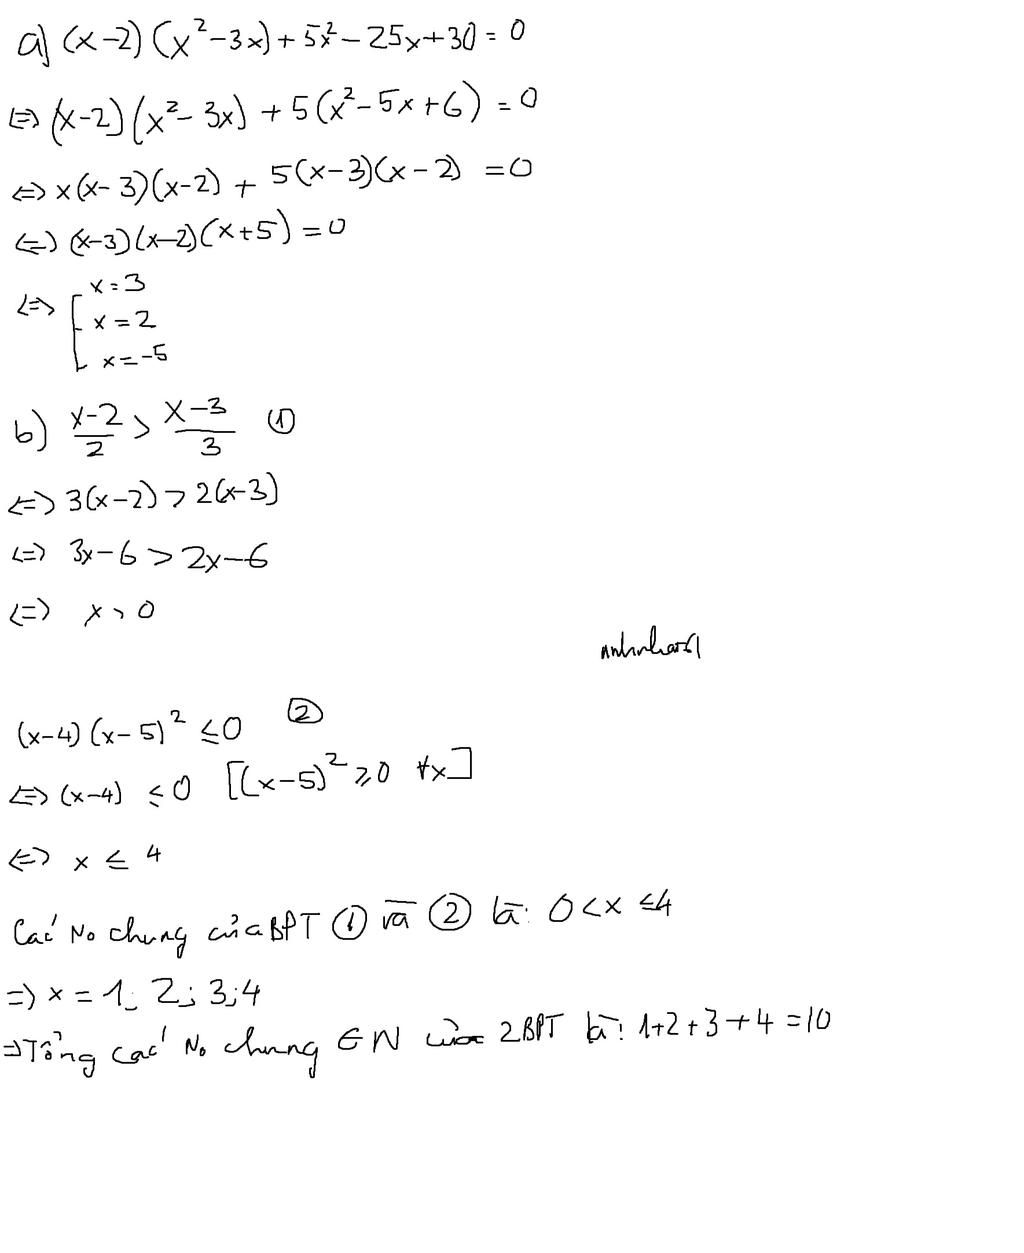 a) (x-2) (x²-3x) + 5x² - 25x + 30 = 0
<=> (x-2) (x² - 3x) + 5(x² - 5x + 6) = 0
<=> x(x-3)(x-2) + 5(x-3)(x-2) = 0
<=> (x-3)(x-2)(x+5) = 0
<=> [ x = 3
x = 2
x = -5
b) x-2/2 > x-3/3 ①
<=> 3(x-2) > 2(x-3)
<=> 3x - 6 > 2x - 6
<=> x > 0
(x-4)(x-5)² ≤ 0 ②
<=> (x-4) ≤ 0 [(x-5)² ≥ 0 ∀x]
<=> x ≤ 4
Các No chung của BPT ① và ② là: 0 < x ≤ 4
=> x = 1; 2; 3; 4
=> Tổng các No chung ∈ N của 2 BPT là: 1+2+3+4 = 10